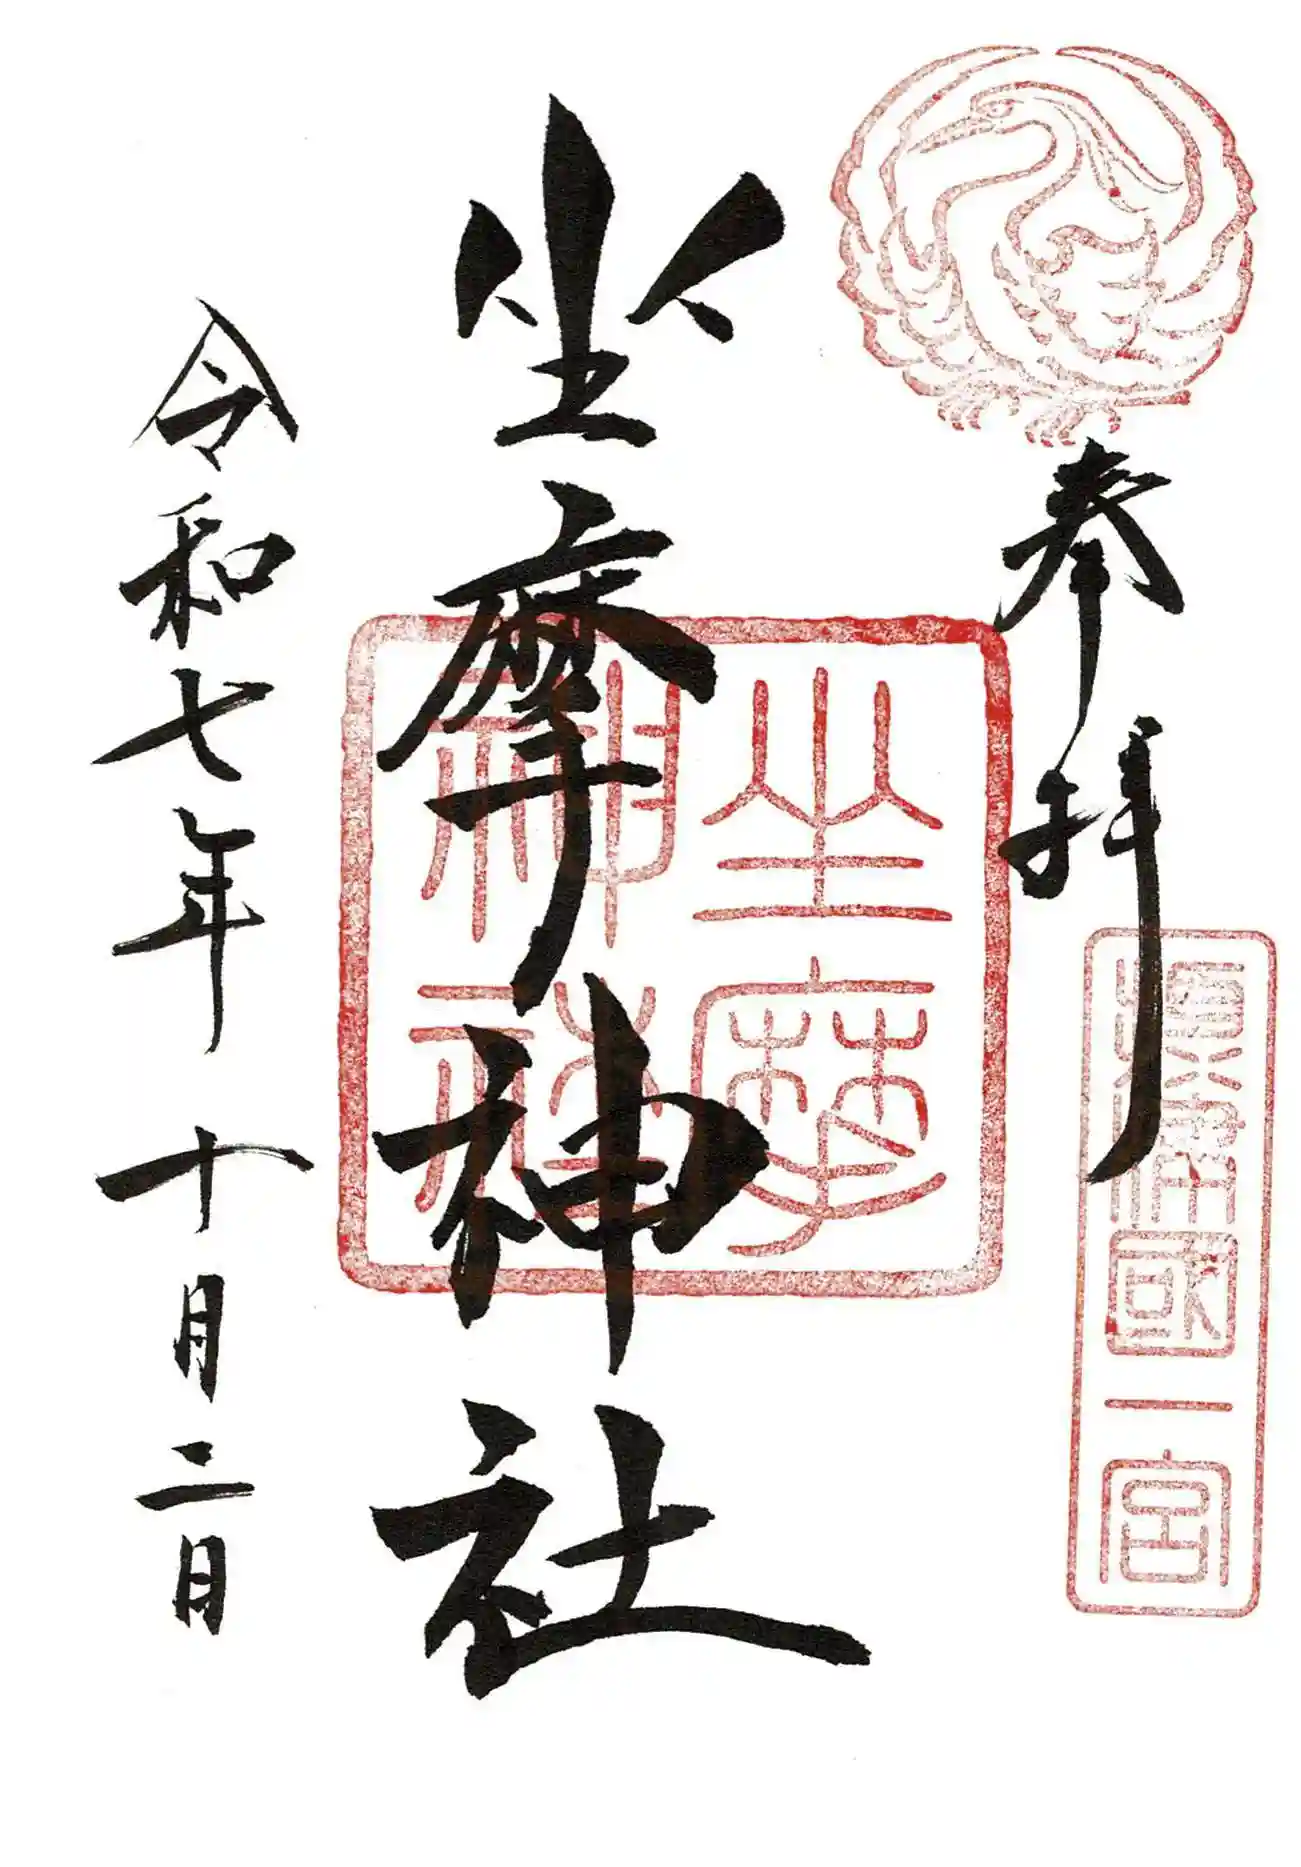 奉拝
摂津國一宮
坐摩神社
坐摩
神社
令和七年十月二日